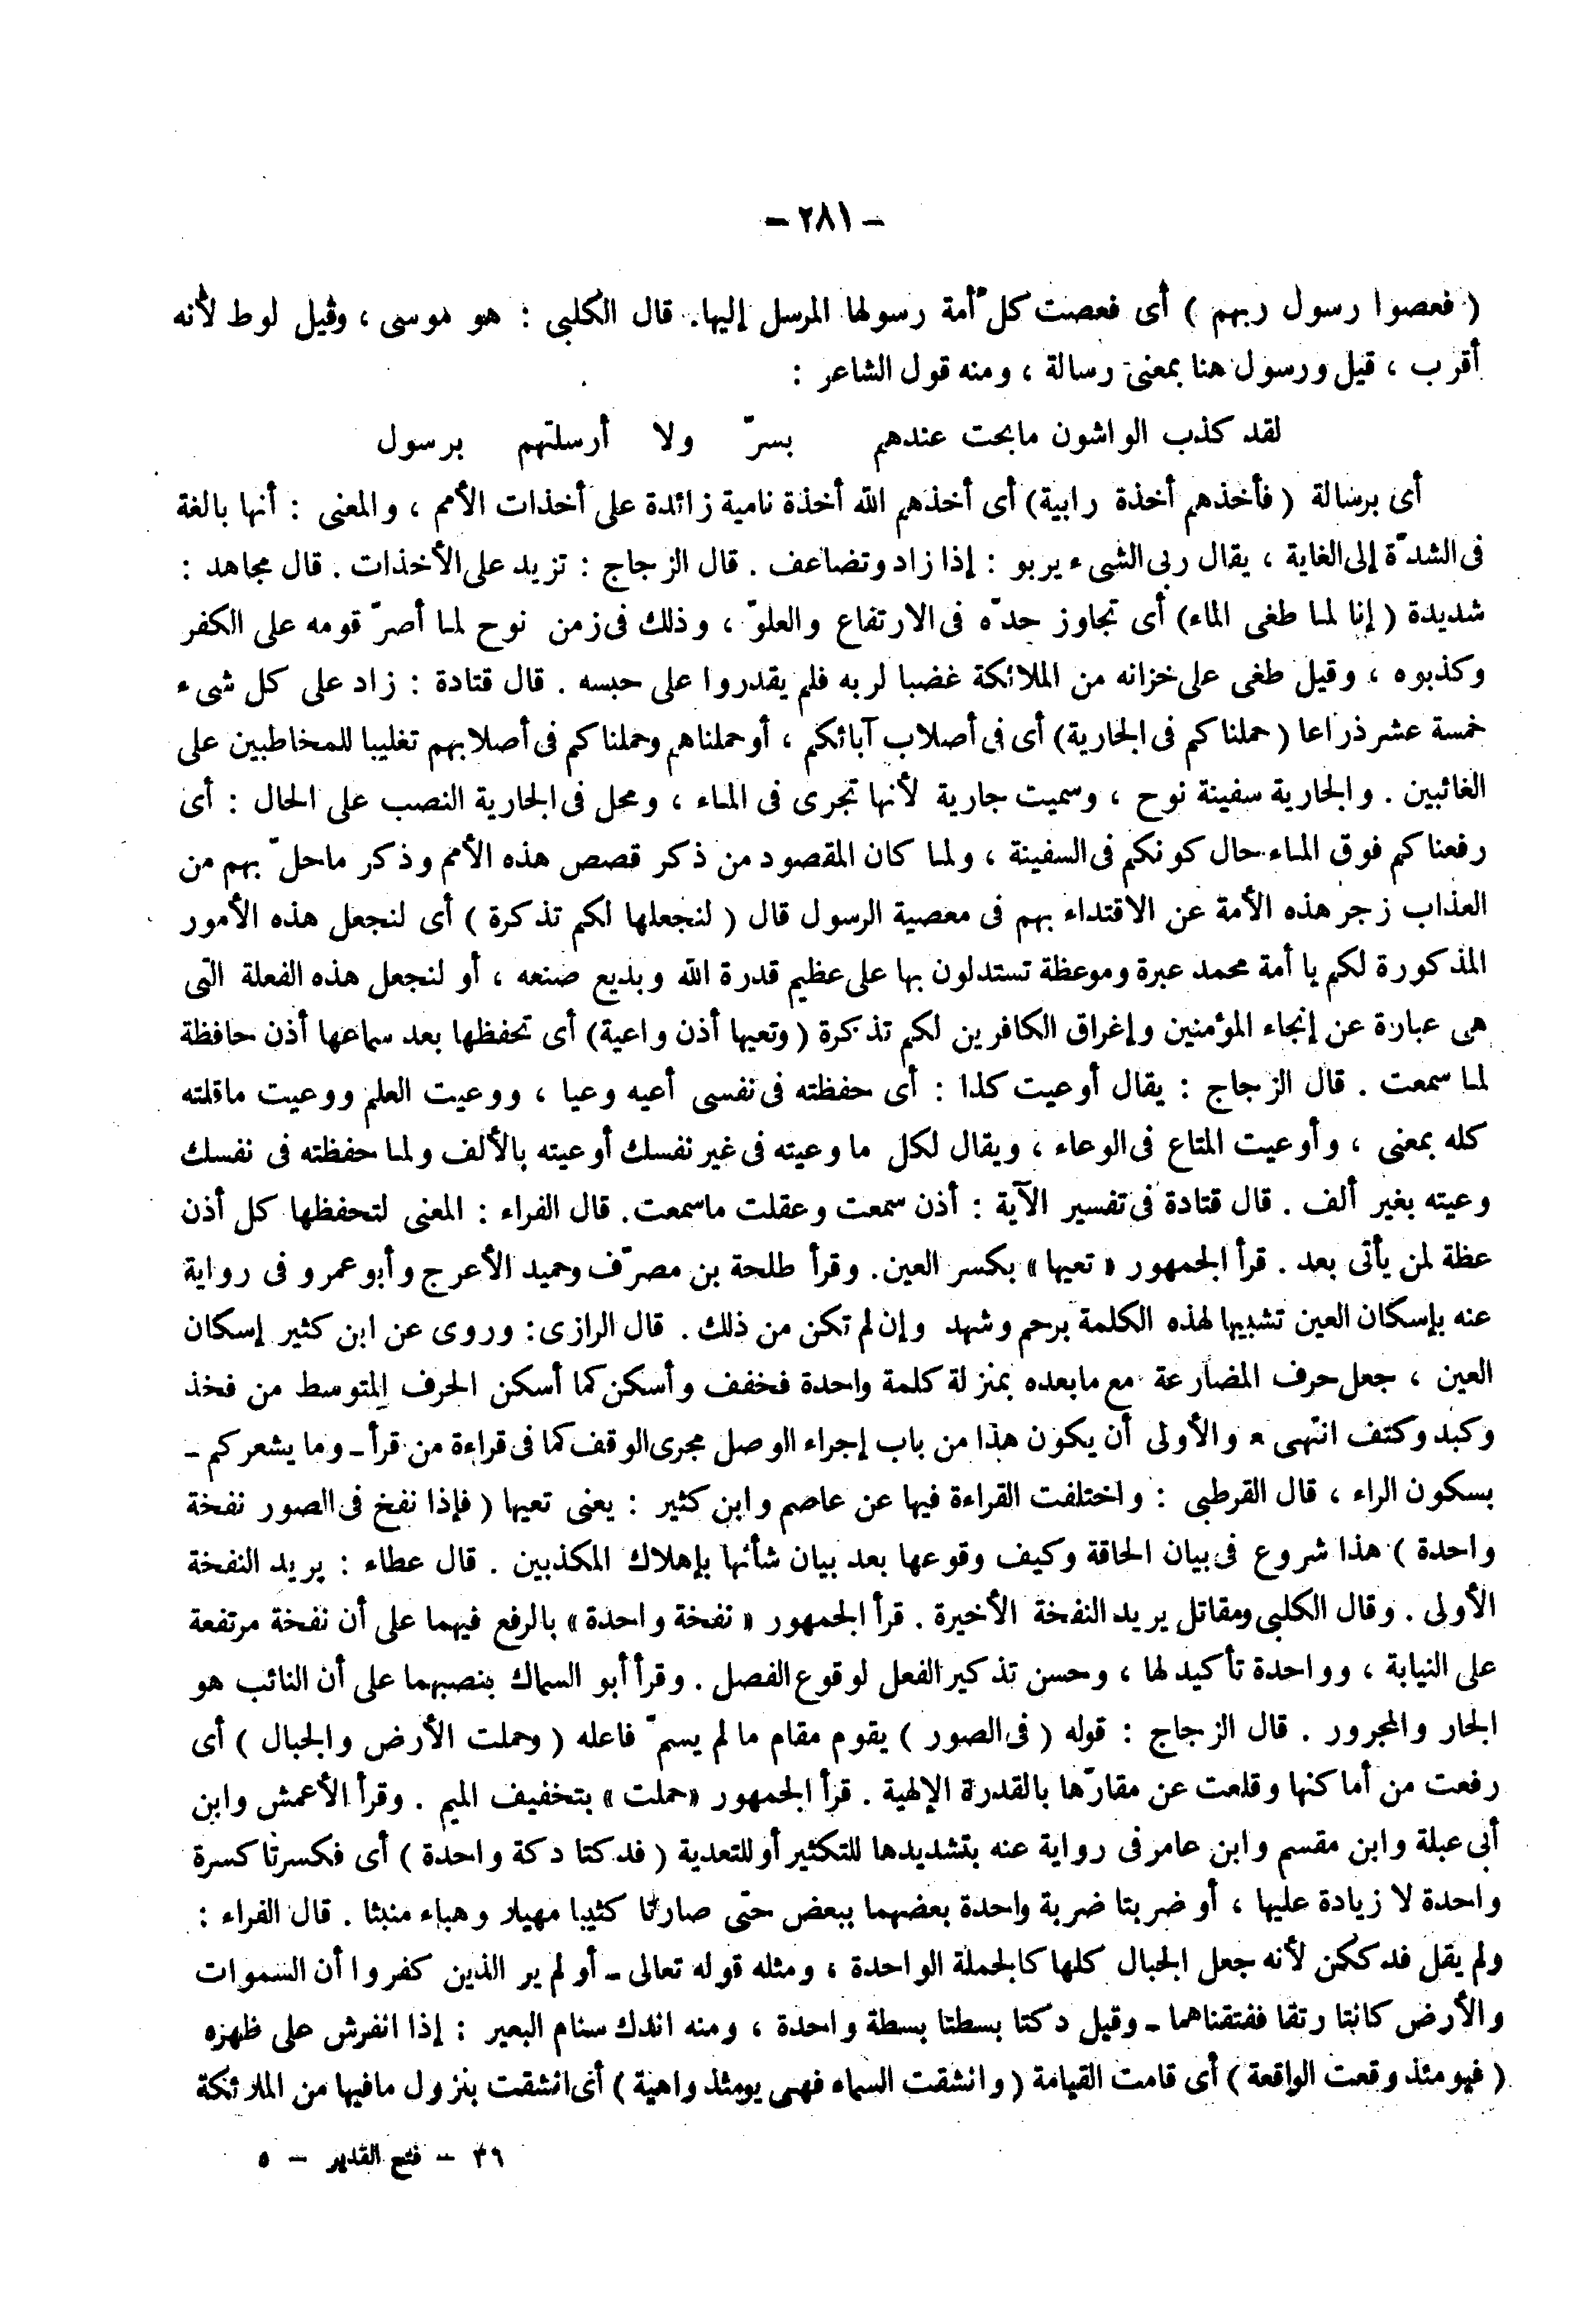 - ٢٨١ -
( فعصوا رسول ربهم ) أى فعصت كلّ أمة رسولها المرسل إليها. قال الكلبى : هو موسى ، وقيل لوط لأنه
أقرب ، قيل ورسول هنا بمعنى رسالة ، ومنه قول الشاعر :
لقد كذب الواشون مابحت عندهم بسرّ ولا أرسلتهم برسول
أى برسالة ( فأخذهم أخذة رابية) أى أخذهم الله أخذة نامية زائدة على أخذات الأمم ، والمعنى : أنها بالغة
فى الشدّة إلى الغاية ، يقال ربى الشىء يربو : إذا زاد وتضاعف . قال الزجاج : تزيد على الأخذات . قال مجاهد :
شديدة ( إنا لما طغى الماء) أى تجاوز حدّه فى الارتفاع والعلوّ ، وذلك فى زمن نوح لما أصرّ قومه على الكفر
وكذبوه ، وقيل طغى على خزانه من الملائكة غضبا لربه فلم يقدروا على حبسه . قال قتادة : زاد على كل شىء
خمسة عشر ذراعا ( حملناكم فى الجارية) أى فى أصلاب آبائكم ، أو حملناهم وحملناكم فى أصلابهم تغليبا للمخاطبين على
الغائبين . والجارية سفينة نوح ، وسميت جارية لأنها تجرى فى الماء ، ومحل فى الجارية النصب على الحال : أى
رفعناكم فوق الماء حال كونكم فى السفينة ، ولما كان المقصود من ذكر قصص هذه الأمم وذكر ماحلّ بهم من
العذاب زجر هذه الأمة عن الاقتداء بهم فى معصية الرسول قال ( لنجعلها لكم تذكرة ) أى لنجعل هذه الأمور
المذكورة لكم يا أمة محمد عبرة وموعظة تستدلون بها على عظيم قدرة الله وبديع صنعه ، أو لنجعل هذه الفعلة التى
هى عبارة عن إنجاء المؤمنين وإغراق الكافرين لكم تذكرة (وتعيها أذن واعية) أى تحفظها بعد سماعها أذن حافظة
لما سمعت . قال الزجاج : يقال أوعيت كذا : أى حفظته فى نفسى أعيه وعيا ، ووعيت العلم ووعيت ماقلته
كله بمعنى ، وأوعيت المتاع فى الوعاء ، ويقال لكل ما وعيته فى غير نفسك أوعيته بالألف ولما حفظته فى نفسك
وعيته بغير ألف . قال قتادة فى تفسير الآية : أذن سمعت وعقلت ماسمعت. قال الفراء : المعنى لتحفظها كل أذن
عظة لمن يأتى بعد . قرأ الجمهور « تعيها» بكسر العين. وقرأ طلحة بن مصرّف وحميد الأعرج وأبو عمرو فى رواية
عنه بإسكان العين تشبيها لهذه الكلمة برحم وشهد وإن لم تكن من ذلك . قال الرازى: وروى عن ابن كثير إسكان
العين ، جعل حرف المضارعة مع مابعده بمنزلة كلمة واحدة فخفف وأسكن كما أسكن الحرف المتوسط من فخذ
وكبد وكتف انتهى ، والأولى أن يكون هذا من باب إجراء الوصل مجرى الوقف كما فى قراءة من قرأ - وما يشعركم -
بسكون الراء ، قال القرطبى : واختلفت القراءة فيها عن عاصم وابن كثير : يعنى تعيها ( فإذا نفخ فى الصور نفخة
واحدة ) هذا شروع فى بيان الحاقة وكيف وقوعها بعد بيان شأنها بإهلاك المكذبين . قال عطاء : يريد النفخة
الأولى . وقال الكلبى ومقاتل يريد النفخة الأخيرة . قرأ الجمهور « نفخة واحدة» بالرفع فيهما على أن نفخة مرتفعة
على النيابة ، وواحدة تأكيد لها ، وحسن تذكير الفعل لوقوع الفصل . وقرأ أبو السماك بنصبهما على أن النائب هو
الجار والمجرور . قال الزجاج : قوله ( فى الصور ) يقوم مقام ما لم يسمّ فاعله ( وحملت الأرض والجبال ) أى
رفعت من أماكنها وقلعت عن مقارّها بالقدرة الإلهية . قرأ الجمهور «حملت» بتخفيف الميم . وقرأ الأعمش وابن
أبى عبلة وابن مقسم وابن عامر فى رواية عنه بتشديدها للتكثير أو للتعدية ( فدكتا دكة واحدة ) أى فكسرتا كسرة
واحدة لا زيادة عليها ، أو ضربتا ضربة واحدة بعضهما ببعض حتى صارتا كثيبا مهيلا وهباء منبثا . قال الفراء :
ولم يقل فدككن لأنه جعل الجبال كلها كالجملة الواحدة ، ومثله قوله تعالى - أو لم ير الذين كفروا أن السموات
والأرض كانتا رتقا ففتقناهما - وقيل دكتا بسطتا بسطة واحدة ، ومنه اندك سنام البعير : إذا انفرش على ظهره
( فيومئذ وقعت الواقعة ) أى قامت القيامة ( وانشقت السماء فهى يومئذ واهية ) أى انشقت بنزول مافيها من الملائكة
٣٦ - فتح القدير - ٥